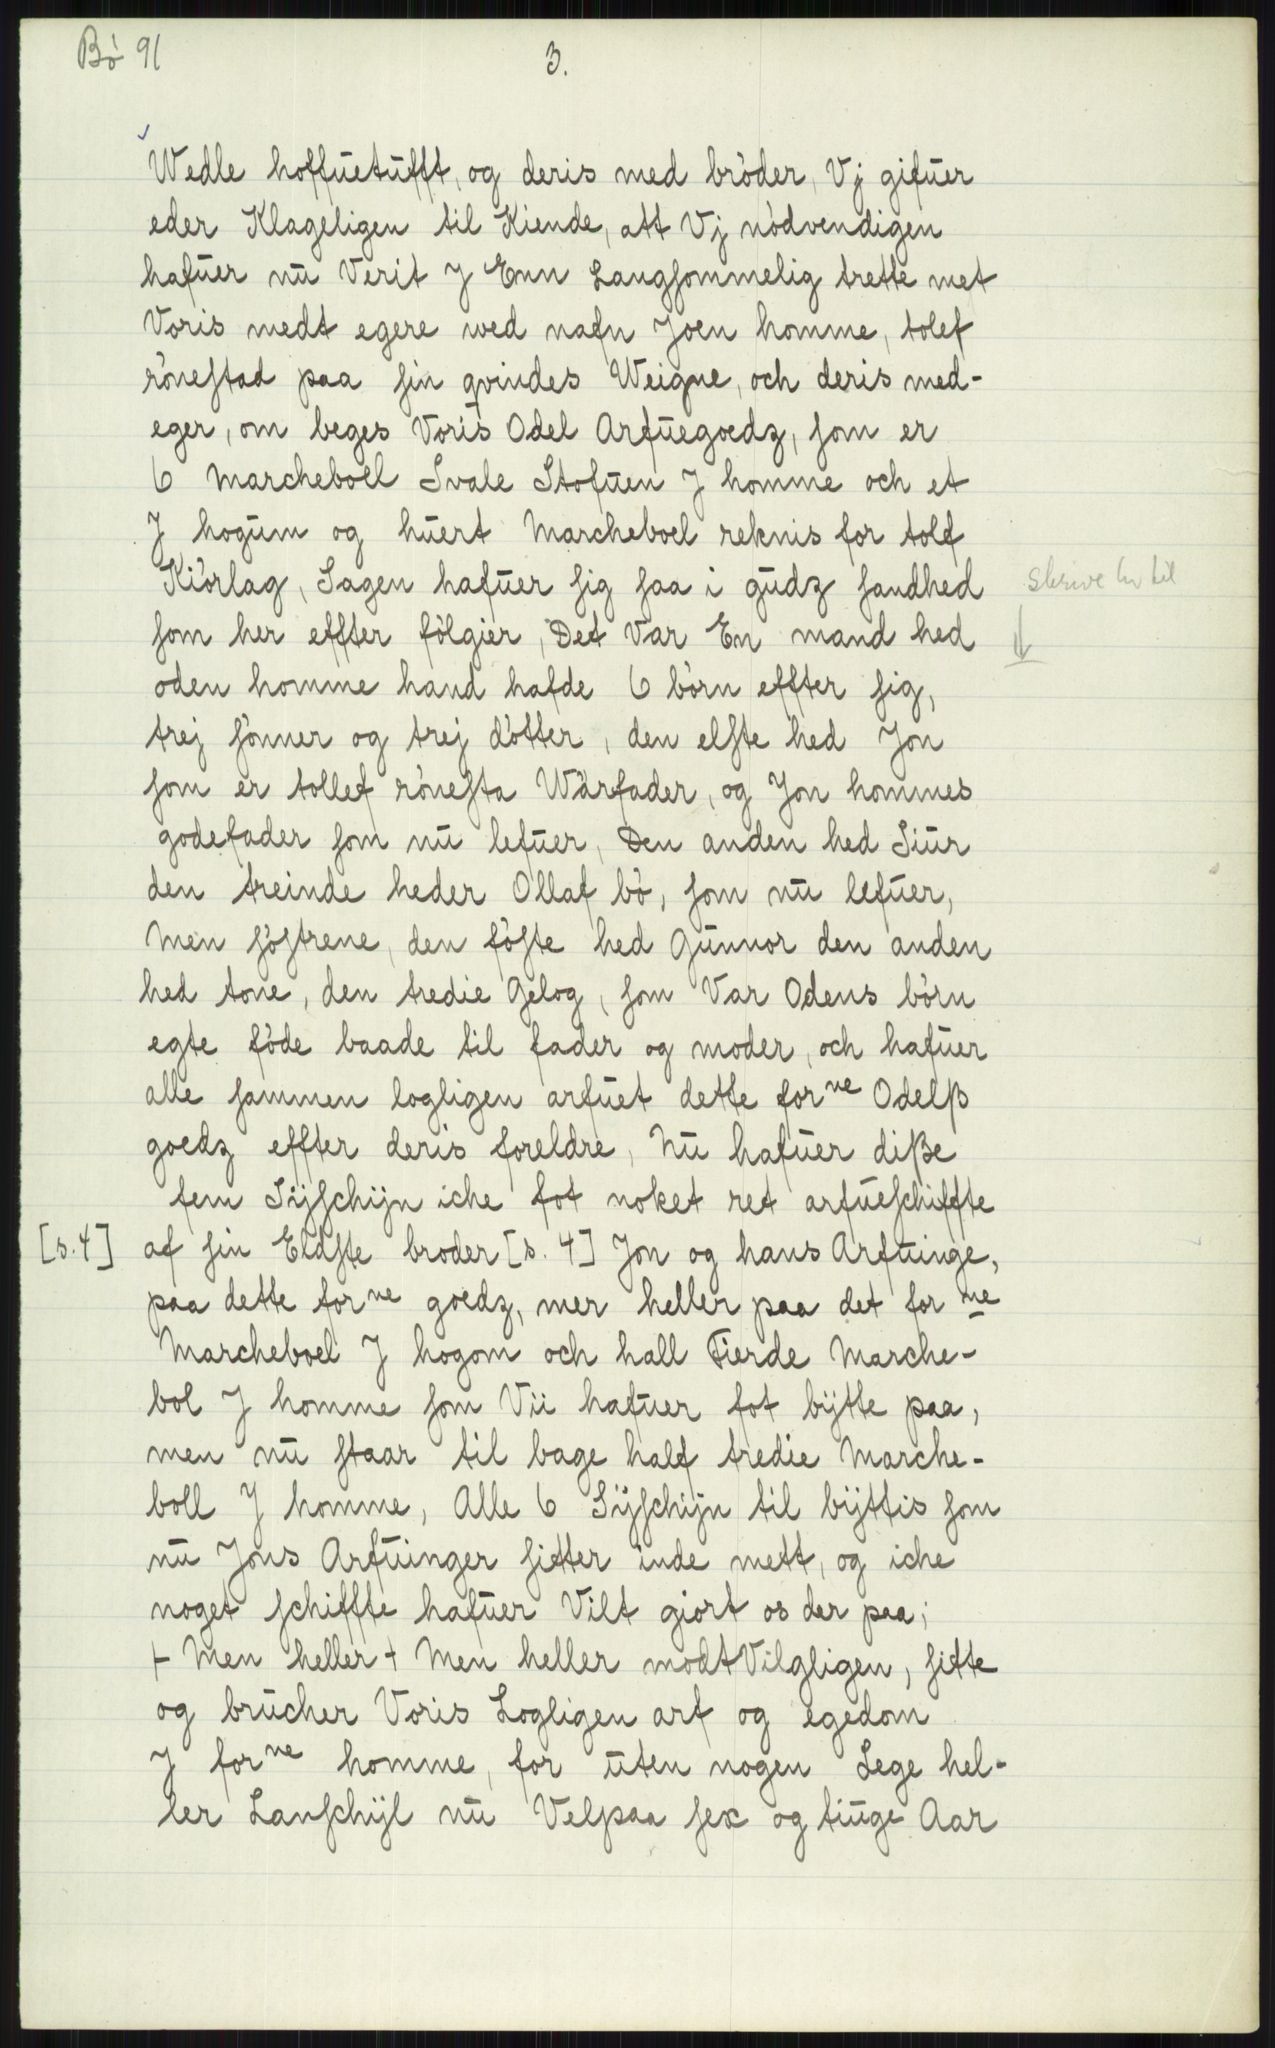 Bö 91
3.
Wedle hoffuetufft, og deris med bröder, Vj gifuer
eder Klageligen til Kiende, att Vj nödvendigen
hafuer nu Verit J Enn Langsommelig trette met
Voris medt egere wed nafn Joen homme, tolef
rönestad paa sin qvindes Weigne, och deris med-
eger, om beges Voris Odel Arfuegoedz, som er
6 Marcheboell Svale Stofuen J homme och et
J hogum og huert Marcheboel reknis for tolf
Kiörlag, Sagen hafuer sig saa i gudz sandhed
skrive hr til
som her effter fölgier, Det Var En mand hed
oden homme hand hafde 6 börn effter sig,
trej sönner og trej dötter, den elste hed Jon
som er tollef rönesta Wärfader, og Jon hommes
godefader som nu lefuer, Den anden hed Siur
den treinde heder Ollaf bö, som nu lefuer,
Men söstrene, den föste hed Gunnor den anden
hed tone, den tredie Gelog, som Var Odens börn
egte föde baade til fader og moder, och hafuer
alle sammen logligen arfuet dette for ne Odelß
goedz effter deris foreldre, Nu hafuer diße
fem Sÿschijn iche fot noket ret arfueschiffte
[s.4] af sin Eldste broder [s. 4] Jon og hans Arfuinge,
paa dette for ne goedz, mer heller paa det for ne
Marcheboel J hogom och hall Fierde Marche-
bol J homme som Vii hafuer fot bÿtte paa,
men nu staar til bage half tredie Marche-
boll J homme, Alle 6 Sÿschijn til bÿttis som
nu Jons Arfuinger sitter inde mett, og iche
noget schiffte hafuer Vilt giort os der paa;
+ Men heller + Men heller modt Vilgligen, sitte
og brucher Voris Logligen arf og egedom
J for ne homme, for uten nogen Lege hel-
ler Lanschÿl nu Velpaa sex og tiuge Aar